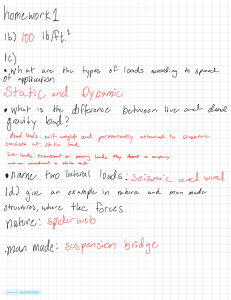 homework 1
1b) 100 lb/ft²
1c)
• What are the types of loads according to speed
of application
Static and Dynamic
• What is the difference between live and dead
gravity load?
dead loads: self weight and permanently attached to structure
live loads: moving loads they
• name two lateral loads: seismic and wind
1d) give an example in nature and man made
structures, where the forces
nature: spiderweb
man made: suspension bridge